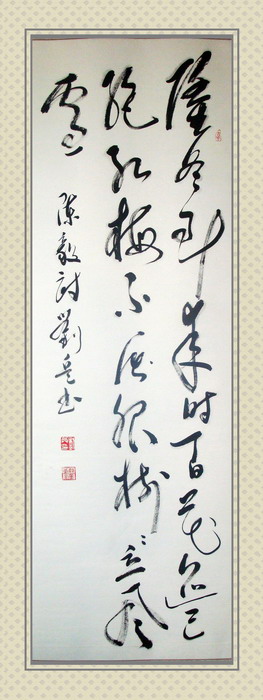 隆冬到来时百花迹已
绝红梅不屈服树〻立风
雪
陈毅诗劉书